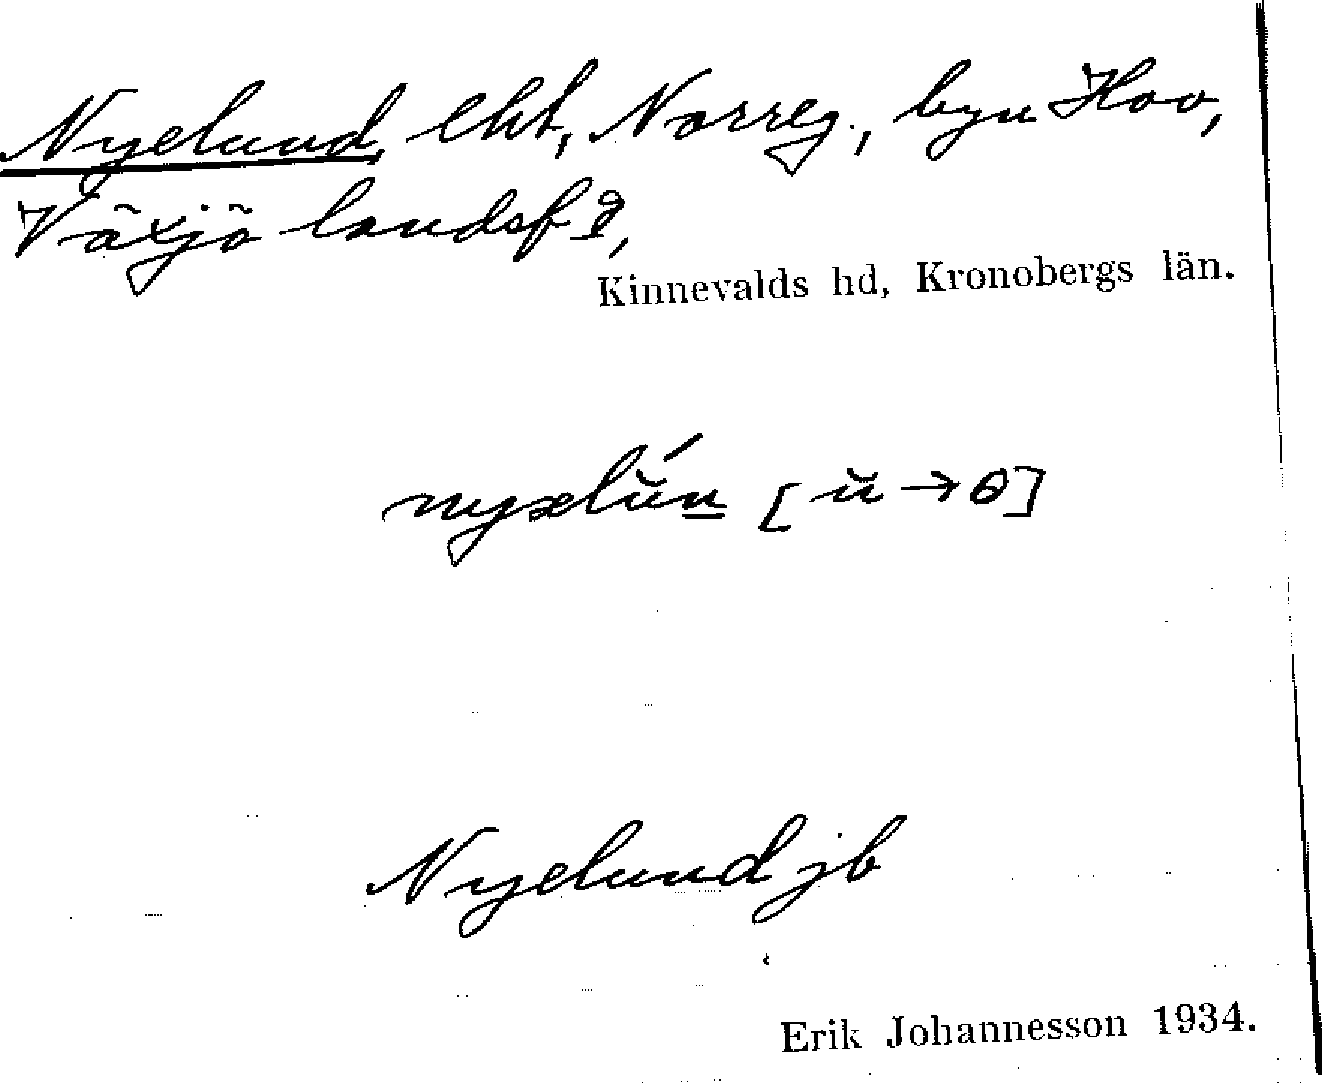 Nyelund, lht, Norreg., byn Hov,
Växjö landsf.
Kinnevalds hd, Kronobergs län.
[ŭ → θ]
Nyelund jb
Erik Johannesson 1934.